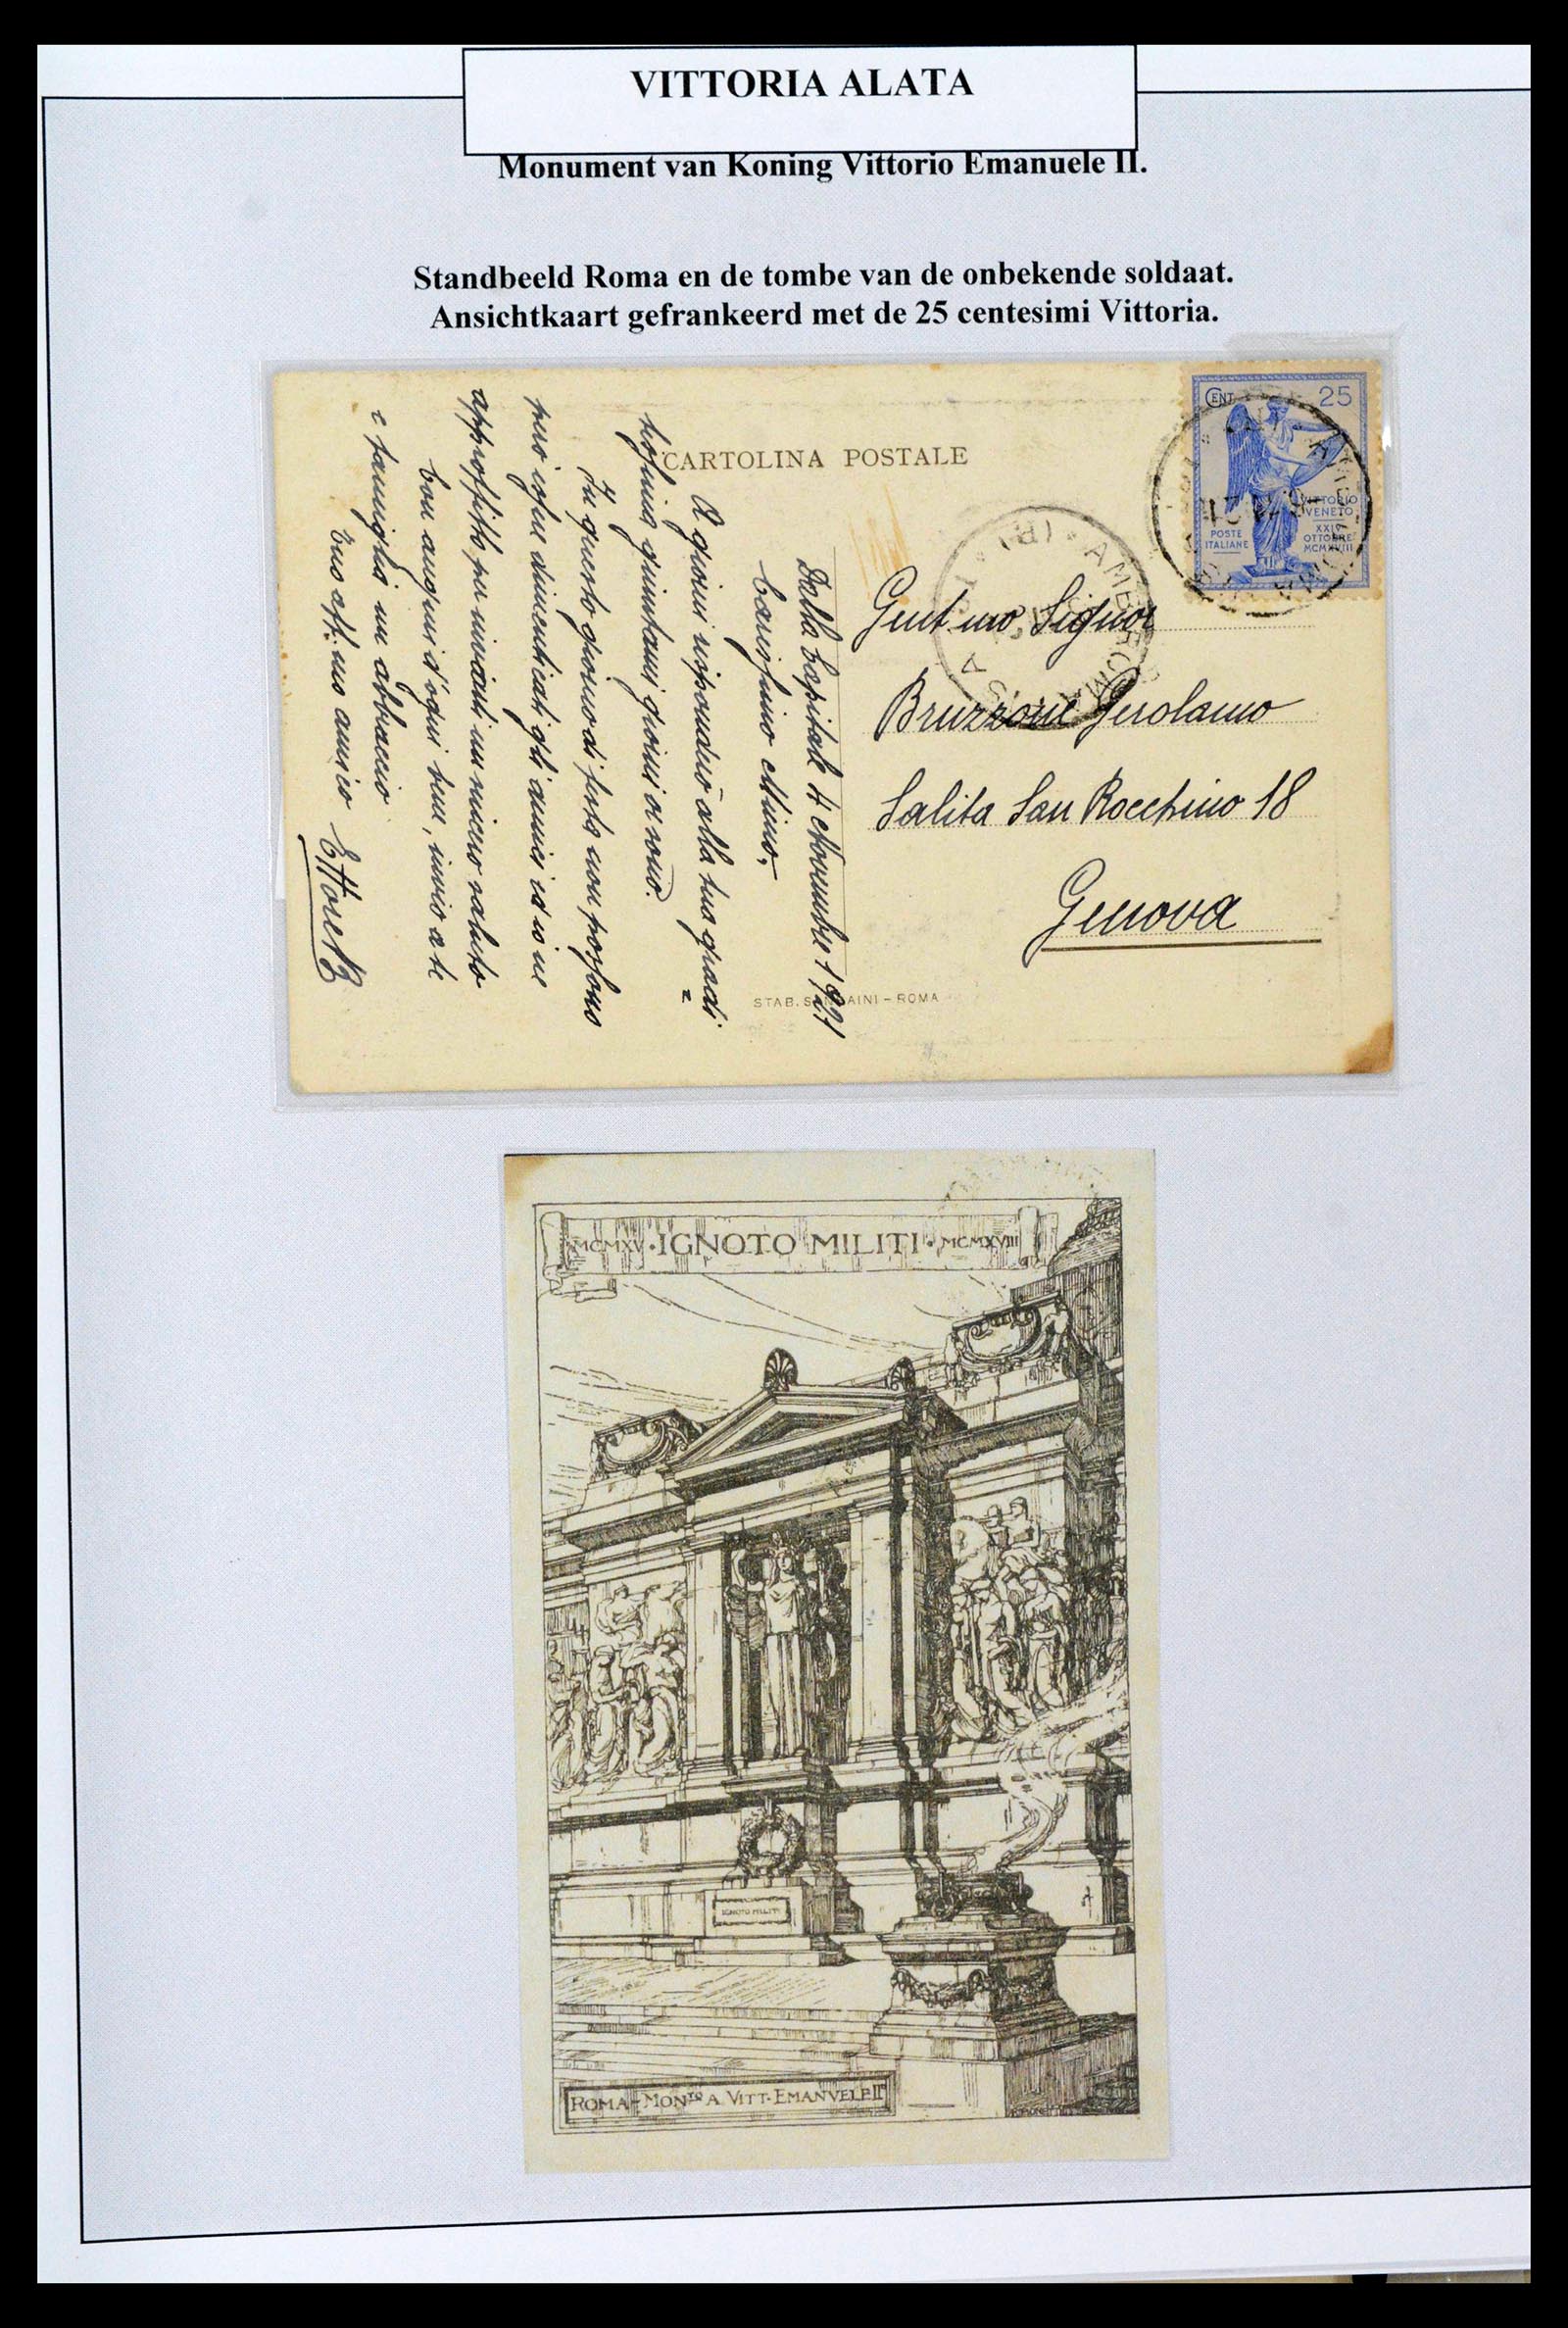 VITTORIA ALATA
Monument van Koning Vittorio Emanuele II.
Standbeeld Roma en de tombe van de onbekende soldaat.
Ansichtkaart gefrankeerd met de 25 centesimi Vittoria.
CENT 25
VITTORIO
VENETO
XXIV
OTTOBRE
MCMXVIII
POSTE
ITALIANE
CARTOLINA POSTALE
Gent mo Signor
Bruzzone Gerolamo
Salita San Rocchino 18
Genova
Dalla Capitale 4 Novembre 1921
Carissimo Mimo,
A giorni risponderò alla tua gradi=
tissima giuntami giorni or sono.
In questo giorno di festa non possono
però esser dimenticati gli amici ed io ne
approfitto per inviarti un micro saluto
Con auguri d'ogni bene, invio a te
e famiglia un abbraccio
Tuo aff.mo amico Ettore
STAB. S AINI - ROMA
MCMXV · IGNOTO MILITI · MCMXVIII
IGNOTO MILITI
ROMA - MONTO A VITT. EMANVELE II